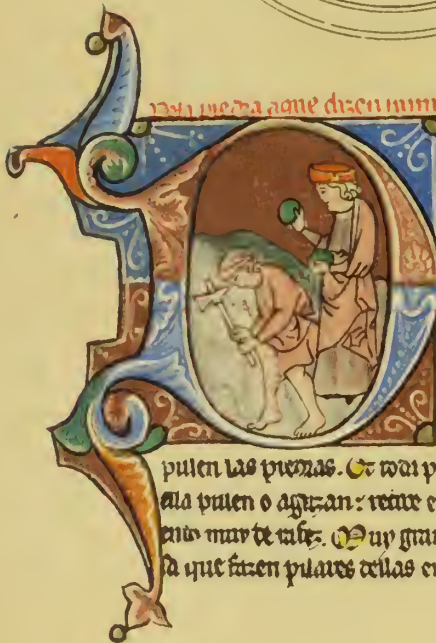 piedra a que dizen
pulen las piedras. Et toda p
ella pulen o aguzan: recibe e
muy de rafez. Muy gran
que fazen pilares dellas en